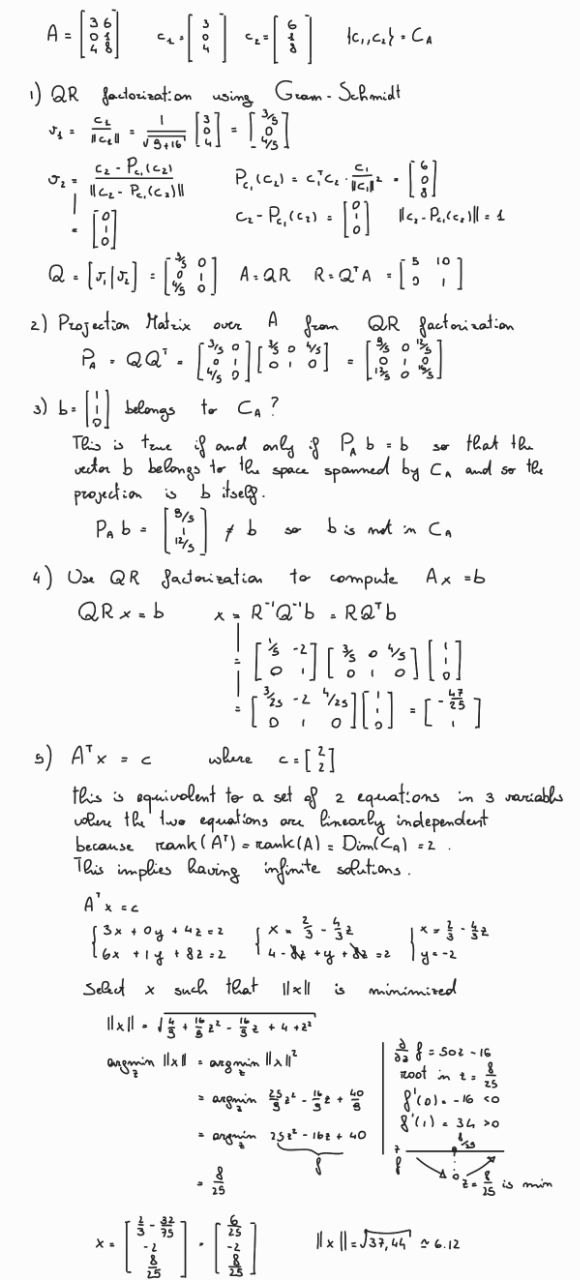 A = [3 6; 0 1; 4 8] c₁ = [3; 0; 4] c₂ = [6; 1; 8] {c₁, c₂} = C_A
1) QR factorization using Gram-Schmidt
v₁ = c₁/||c₁|| = 1/√(9+16) [3; 0; 4] = [3/5; 0; 4/5]
v₂ = (c₂ - P_c₁(c₂))/||c₂ - P_c₁(c₂)|| P_c₁(c₂) = c₁ᵀc₂ · c₁/||c₁||² = [6; 0; 8]
= [0; 1; 0] c₂ - P_c₁(c₂) = [0; 1; 0] ||c₂ - P_c₁(c₂)|| = 1
Q = [v₁|v₂] = [3/5 0; 0 1; 4/5 0] A = QR R = QᵀA = [5 10; 0 1]
2) Projection Matrix over A from QR factorization
P_A = QQᵀ = [3/5 0; 0 1; 4/5 0] [3/5 0 4/5; 0 1 0] = [9/5 0 12/5; 0 1 0; 12/5 0 16/5]
3) b = [1; 1; 0] belongs to C_A?
This is true if and only if P_A b = b so that the
vector b belongs to the space spanned by C_A and so the
projection is b itself.
P_A b = [9/5; 1; 12/5] ≠ b so b is not in C_A
4) Use QR factorization to compute Ax = b
QRx = b x = R⁻¹Q⁻¹b = RQᵀb
= [1/5 -2; 0 1] [3/5 0 4/5; 0 1 0] [1; 1; 0]
= [3/25 -2 4/25; 0 1 0] [1; 1; 0] = [-47/25; 1]
5) Aᵀx = c where c = [2; 2]
this is equivalent to a set of 2 equations in 3 variables
where the two equations are linearly independent
because rank(Aᵀ) = rank(A) = Dim(C_A) = 2.
This implies having infinite solutions.
Aᵀx = c
{3x + 0y + 4z = 2 {x = 2/3 - 4/3z {x = 2/3 - 4/3z
{6x + 1y + 8z = 2 {4 - 8z + y + 8z = 2 {y = -2
Select x such that ||x|| is minimized
||x|| = √(4/9 + 16/9 z² - 16/9 z + 4 + z²)
argmin_z ||x|| = argmin_z ||x||²
= argmin_z 25/9 z² - 16/9 z + 40/9
= argmin_z 25z² - 16z + 40
f
= 8/25
∂/∂z f = 50z - 16
root in z = 8/25
f'(0) = -16 < 0
f'(1) = 34 > 0
8/25
z
f
z = 8/25 is min
x = [2/3 - 32/75; -2; 8/25] = [6/25; -2; 8/25] ||x|| = √37,44 ≃ 6.12